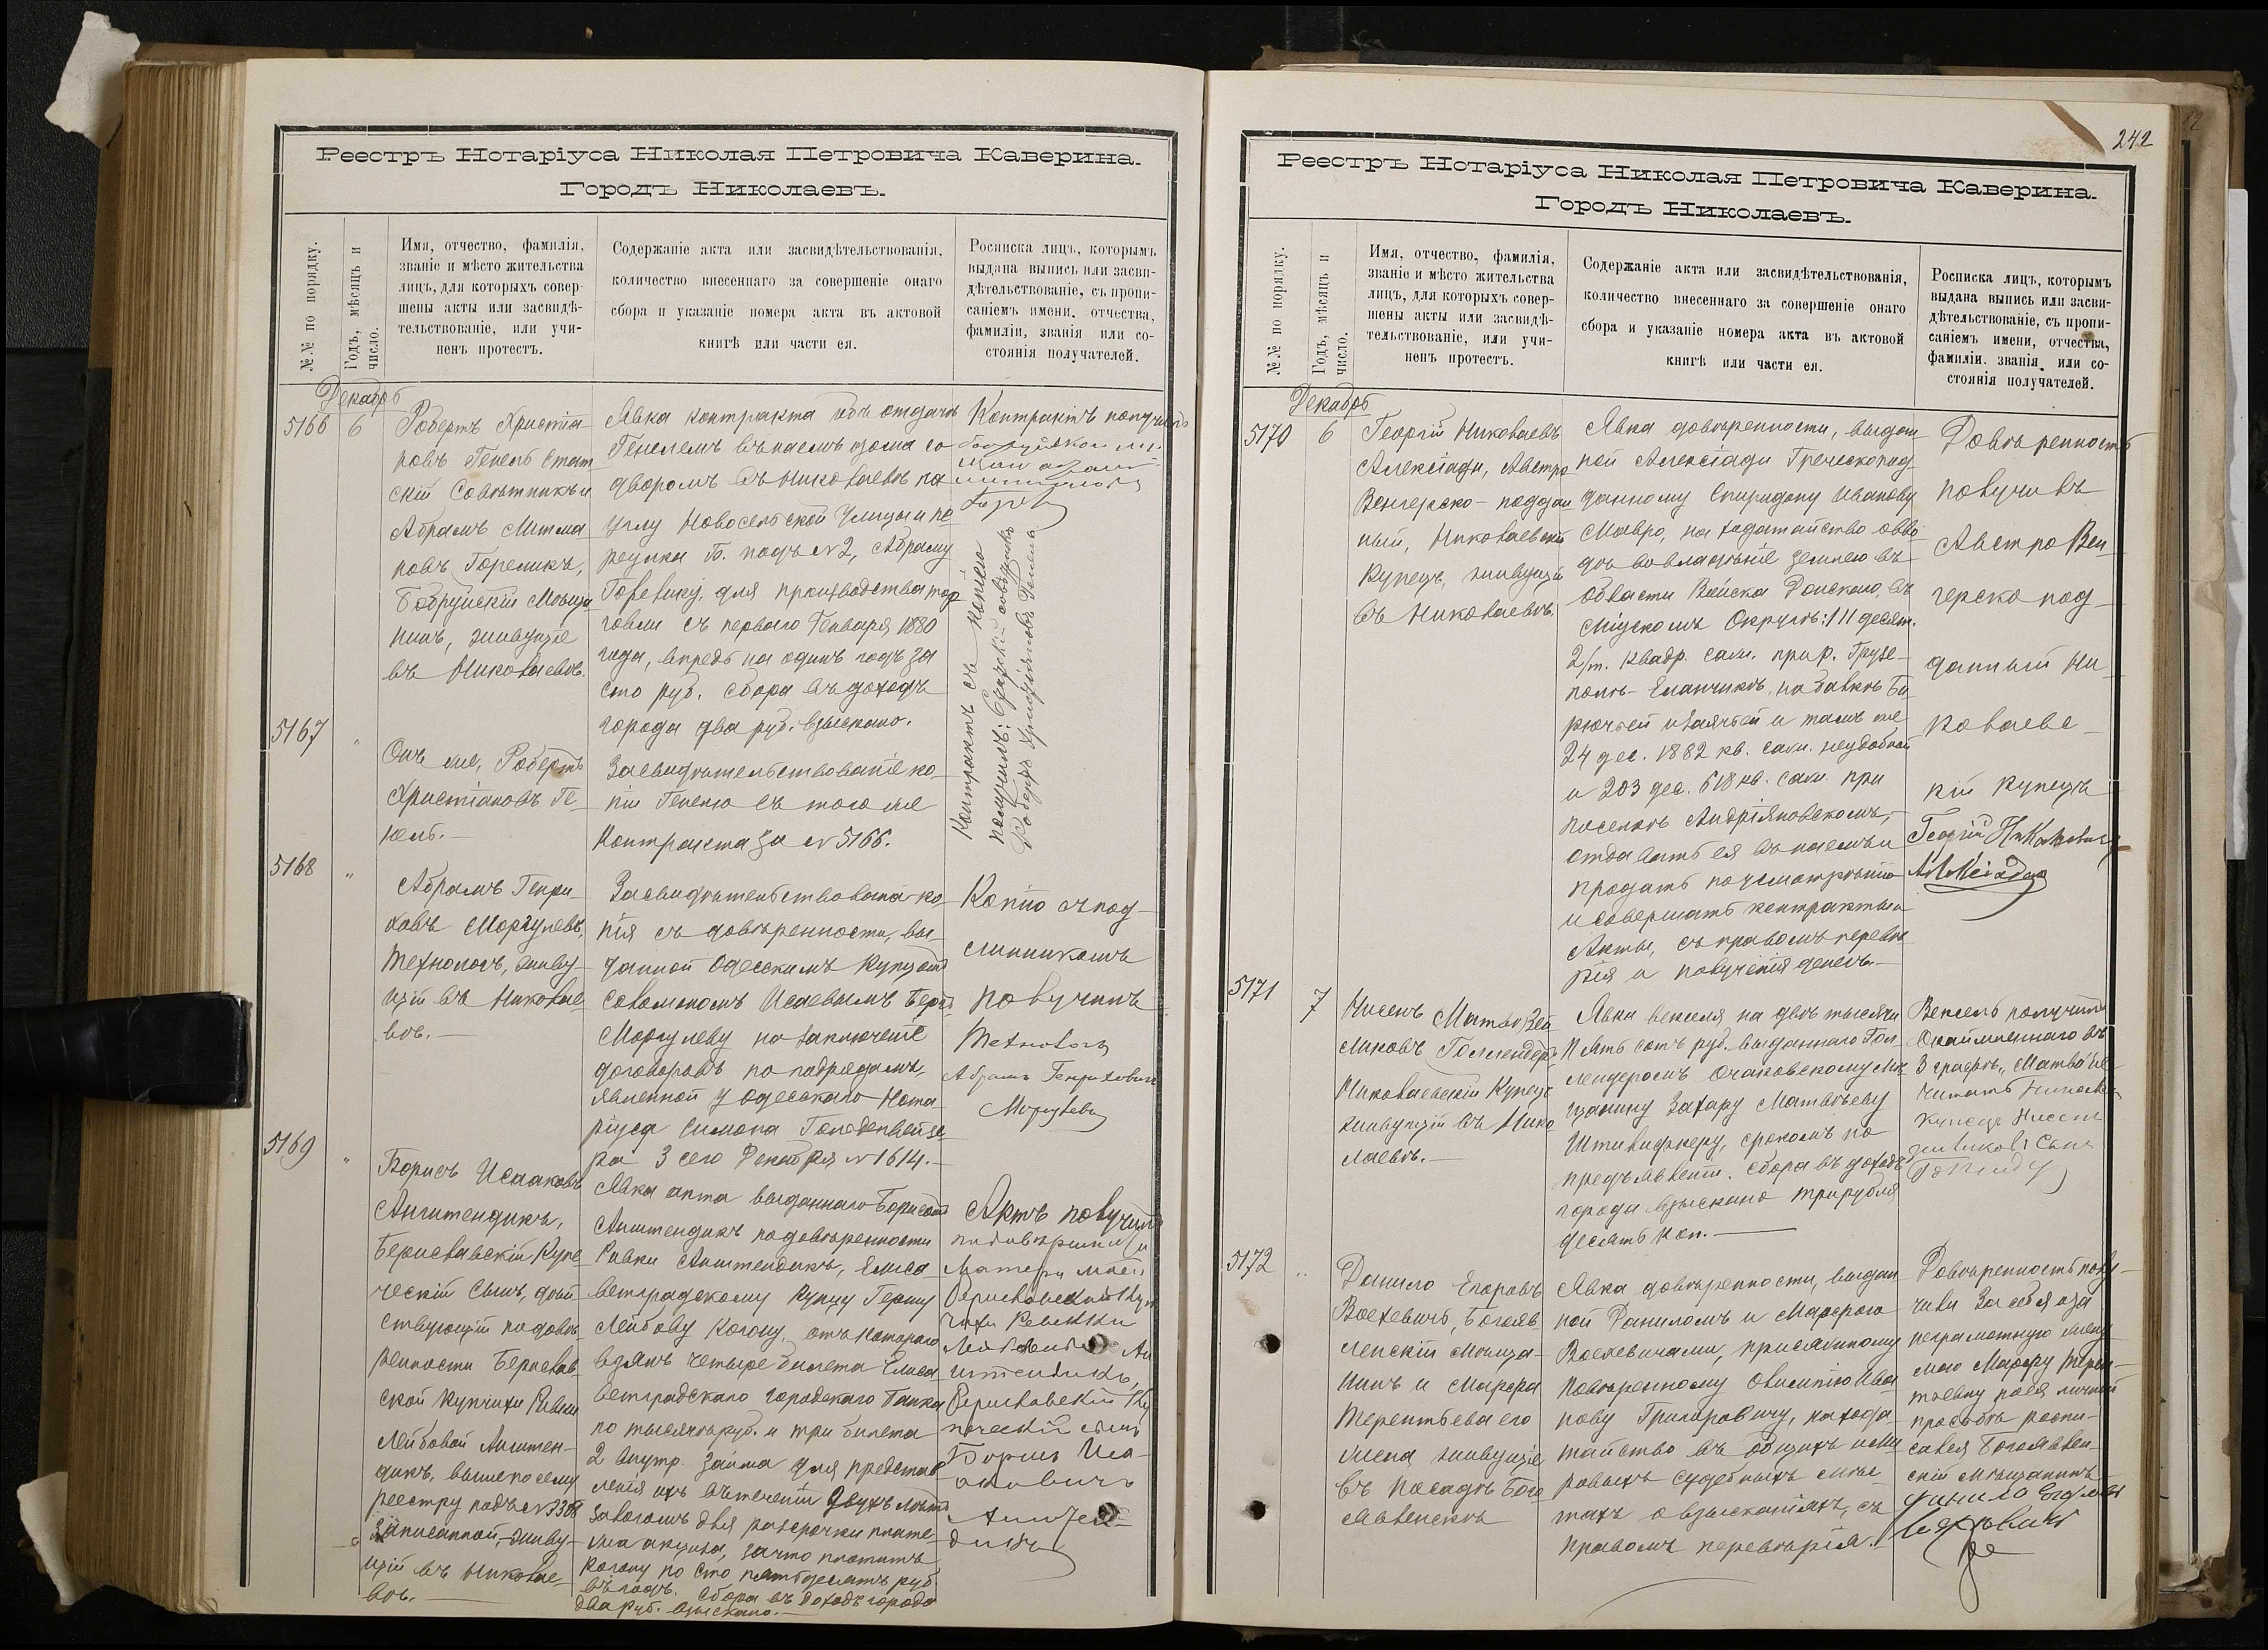 Реестръ Нотаріуса Николая Петровича Каверина.
Городъ Николаевъ.
№№ по порядку.
Годъ, мѣсяцъ и
число.
Имя, отчество, фамилія,
званіе и мѣсто жительства
лицъ, для которыхъ совер-
шены акты или засвидѣ-
тельствованіе, или учи-
ненъ протестъ.
Содержаніе акта или засвидѣтельствованія,
количество внесеннаго за совершеніе онаго
сбора и указаніе номера акта въ актовой
книгѣ или части ея.
Росписка лицъ, которымъ
выдана выпись или засви-
дѣтельствованіе, съ пропи-
саніемъ имени, отчества,
фамиліи, званія или со-
стоянія получателей.
Декабрь
5166
6
Робертъ Христіа-
новъ Генель Стат
скій Совѣтникъ и
Абрамъ
новъ Гореликъ,
Бобруйскій Мѣща
нинъ, живущіе
въ Николаевѣ.
Явка контракта объ отдачѣ
Генелемъ въ наемъ дома со
дворомъ въ Николаевѣ на
углу Новосельской Улицы и пе
реулка подъ №2, Абраму
Горелику, для производства тор
говли съ перваго Генваря 1880
года, впредь на одинъ годъ за
сто руб. Сбора въ доходъ
города два руб. взыскано.
Контрактъ получилъ
Контрактъ съ копіею
получилъ: Статскій совѣтникъ
Робертъ Христіановъ Генель
5167
"
Онъ же, Робертъ
Христіановъ Ге
нель.-
Засвидѣтельствованіе ко-
піи Генелю съ того же
Контракта за №5166.
5168
"
Абрамъ Генри
ховъ Моргулевъ,
Технологъ, живу-
щій въ Николае-
вѣ.-
Засвидѣтельствована ко-
пія съ довѣренности, вы-
данной Одесскимъ Купцомъ
Соломономъ Исаевымъ
Моргулеву на заключеніе
договоровъ по подрядамъ,
явленной у Одесскаго Нота-
ріуса Симона Гольденвейзе
ра 3 сего Декабря №1614.-
Копію съ под-
линникомъ
получилъ
Технологъ
Абрамъ Генриховичъ
Моргулевъ
5169
"
Борисъ Исааковъ
Анштендикъ,
Бериславскій Купе
ческій Сынъ, дѣй
ствующій по довѣ-
ренности Берислав
ской купчихи Ривки
Лейбовой Анштен-
дикъ, выше по сему
реестру подъ №3308
записанной,-живу-
щій въ Николае-
вѣ.-
Явка акта выданнаго Борисомъ
Анштендикъ по довѣренности
Ривки Анштендикъ, Елиса
ветградскому Купцу Гершу
Лейбову Когону, отъ котораго
взялъ четыре билета Елиса
ветградскаго Городскаго Банка
по тысячѣ руб. и три билета
2 внутр. Займа для представ
ленія ихъ въ теченіи двухъ лѣтъ
залогомъ для разсрочки плате-
жа акциза, за что платитъ
Когону по сто пятьдесятъ руб.
въ годъ. Сбора въ доходъ города
два руб. взыскано.-
Актъ получилъ
по довѣренности
Матери моей
Бериславской Куп
чихи Ревекки
Лейбовны Ан
штендикъ,
Бериславскій Ку
печескій сынъ
Борисъ Иса-
аковичъ
Анштен-
дикъ
242
Реестръ Нотаріуса Николая Петровича Каверина.
Городъ Николаевъ.
№№ по порядку.
Годъ, мѣсяцъ и
число.
Имя, отчество, фамилія,
званіе и мѣсто жительства
лицъ, для которыхъ совер-
шены акты или засвидѣ-
тельствованіе, или учи-
ненъ протестъ.
Содержаніе акта или засвидѣтельствованія,
количество внесеннаго за совершеніе онаго
сбора и указаніе номера акта въ актовой
книгѣ или части ея.
Росписка лицъ, которымъ
выдана выпись или засви-
дѣтельствованіе, съ пропи-
саніемъ имени, отчества,
фамиліи. званія или со-
стоянія получателей.
Декабрь
5170
6
Георгій Николаевъ
Алексіади, Австро
Венгерско-поддан
ный, Николаевскій
Купецъ, живущій
въ Николаевѣ.
Явка довѣренности, выдан
ной Алексіади Греческопод-
данному Спиридону Иванову
Мавро, на ходатайство о вво
дѣ во владѣніе землею въ
области Войска Донскаго, въ
Міускомъ Округѣ: 111 десят.
2/т. квадр. саж. при р. Грузс-
комъ-Еланчикѣ, на балкѣ Би
рючьей и Заячьей и тамъ же
24 дес. 1882 кв. саж. неудобной
и 203 дес. 618 кв. саж. при
поселкѣ Андріяновскомъ,
отдавать ея въ наемъ и
продать по усмотрѣнію
и совершать контракты и
Акты, съ правомъ передовѣ
рія и полученія денегъ.-
Довѣренность
получилъ
Австро Вен
герско под-
данный Ни
колаевс-
кій купецъ
Георгій Николаевичъ
5171
7
Нисенъ Зей
ликовъ Голлендеръ
Николаевскій Купецъ
живущій въ Нико
лаевѣ.-
Явка векселя на двѣ тысячи
пять сотъ руб. выданнаго Гол-
лендеромъ Очаковскому Мѣ
щанину Захару Матвѣеву
срокомъ по
предъявленіи. Сбора въ доходъ
города взыскано три рубля
десять коп.-
Вексель получилъ
въ
3 графѣ "Матвѣ" не
читать Николаев
купецъ Нисенъ
Зейликовъ Сынъ
5172
"
Данило Егоровъ
Воехевичъ, Богояв-
ленскій мѣща-
нинъ и Марфа
Терентьева его
жена живущіе
въ посадѣ Бого
явленскѣ
Явка довѣренности, выдан
ной Даниломъ и Марфою
Воехевичами, присяжному
повѣренному Ива
нову Григоровичу, на хода-
тайство въ общихъ и ми
ровыхъ судебныхъ мѣс
тахъ о взысканіяхъ, съ
правомъ передовѣрія.
Довѣренность полу-
чилъ за себя и за
неграмотную жену
мою Марфу Терен-
тьевну по ея личной
просьбѣ роспи-
сался Богоявлен
скій мѣщанинъ
Данило Егоровъ